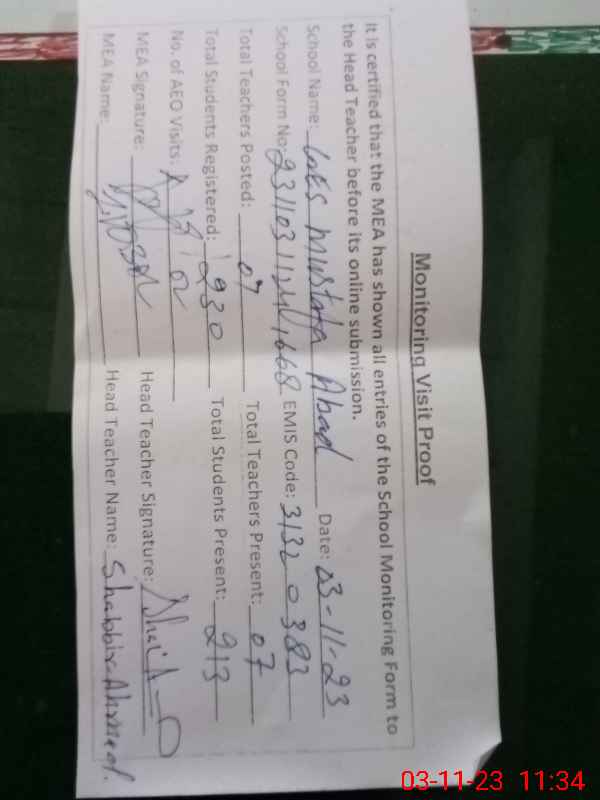 Monitoring Visit Proof
It is certified that the MEA has shown all entries of the School Monitoring Form to
the Head Teacher before its online submission.
School Name: Mustafa Abad Date: 03-11-23
School Form No: EMIS Code: 31320383
Total Teachers Posted: 07 Total Teachers Present: 07
Total Students Registered: 230 Total Students Present: 213
No. of AEO Visits:
MEA Signature: Head Teacher Signature:
MEA Name: Head Teacher Name: Shabbir Ahmed.
03-11-23 11:34